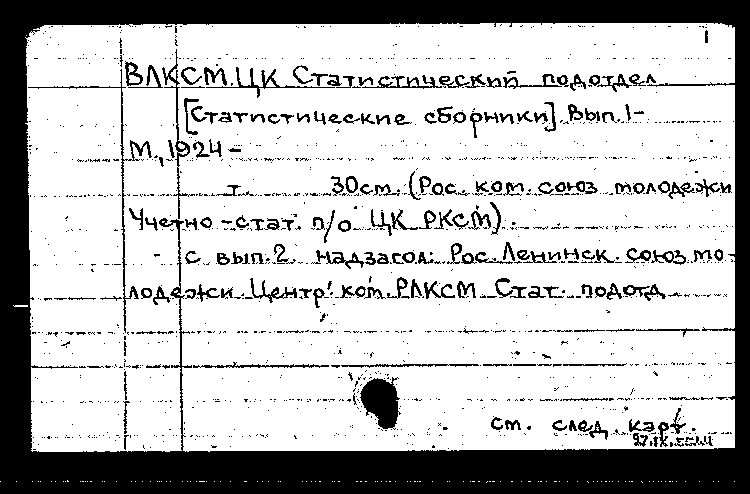 1
ВЛКСМ. ЦК Статистический подотдел
[Статистические сборники]. Вып. 1-
М., 1924 -
т. 30см. (Рос. ком. союз молодежи
Учетно-стат. п/о ЦК РКСМ).
- с вып. 2. надзагол: Рос. Ленинск. союз мо-
лодежи. Центр. ком. РЛКСМ Стат. подотд
см. след. карт.